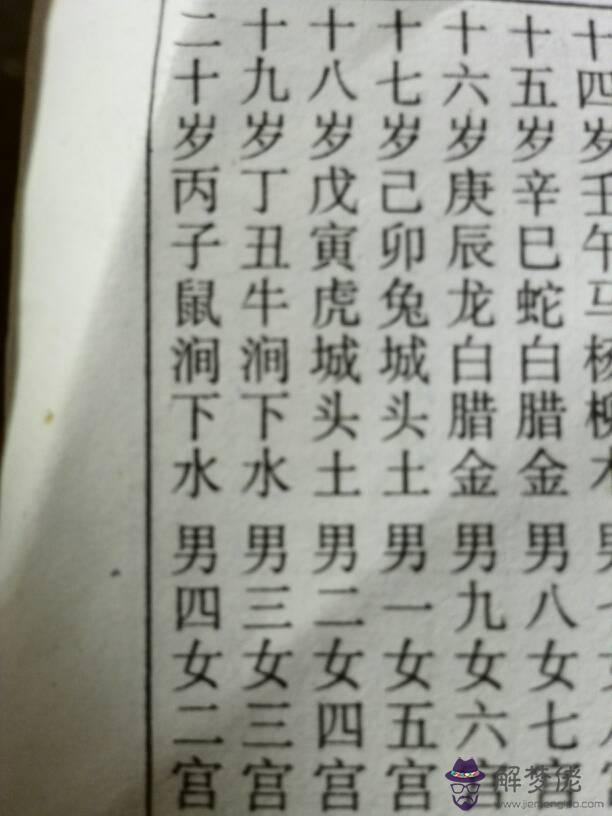 十四岁壬午马杨柳木男
十五岁辛巳蛇白腊金男八女七宫
十六岁庚辰龙白腊金男九女六宫
十七岁己卯兔城头土男一女五宫
十八岁戊寅虎城头土男二女四宫
十九岁丁丑牛涧下水男三女三宫
二十岁丙子鼠涧下水男四女二宫
解梦佬
www.jiemenglao.com